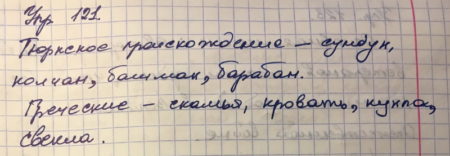 Упр 121.
Тюркское происхождение – сундук,
колчан, башмак, барабан.
Греческие – скамья, кровать, кукла,
свекла.